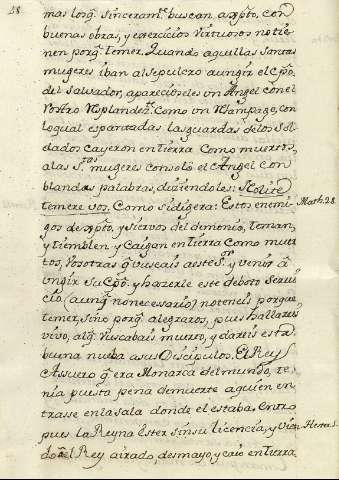 58
mas los q̃. sinceramte. buscan, a xp̃to, con
buenas obras, y exercicios virtuosos no tie-
nen porq̃. temer. Quando aquellas santas
mugeres iban al sepulcro a ungir el Cp̃o.
del Salvador, apareciòseles un Angel con el
rostro resplandezte. como un relampago, con
loqual espantadas las guardas de los Sol-
dados cayeron en tierra como muertos,
a las Stas. mugeres consolò el Angel con
blandas palabras, diziendoles: Nolite
temere vos. Como si digera: Estos enemi- Math. 28.
gos de xp̃to, y siervos del demonio, teman,
y tiemblen y caigan en tierra como muer-
tos, vosotras q̃ buscais a este Sr. y venis à
ungir su Cp̃o. y hazerle este deboto servi-
cio (aunq̃ no necesario) no teneis porque
temer, sino porq̃ alegraros, pues hallareis
vivo, al q̃. buscabais muerto, y dareis esta
buena nueba a sus Discipulos. El Rey
Assuero q̃ era Monarca del mundo, te-
nia puesta pena de muerte a quien en-
trasse en la sala donde el estaba. Entrò
pues la Reyna Ester sin su licencia, y vien- Hester 5.
do al Rey airado, desmayo, y caiò en tierra